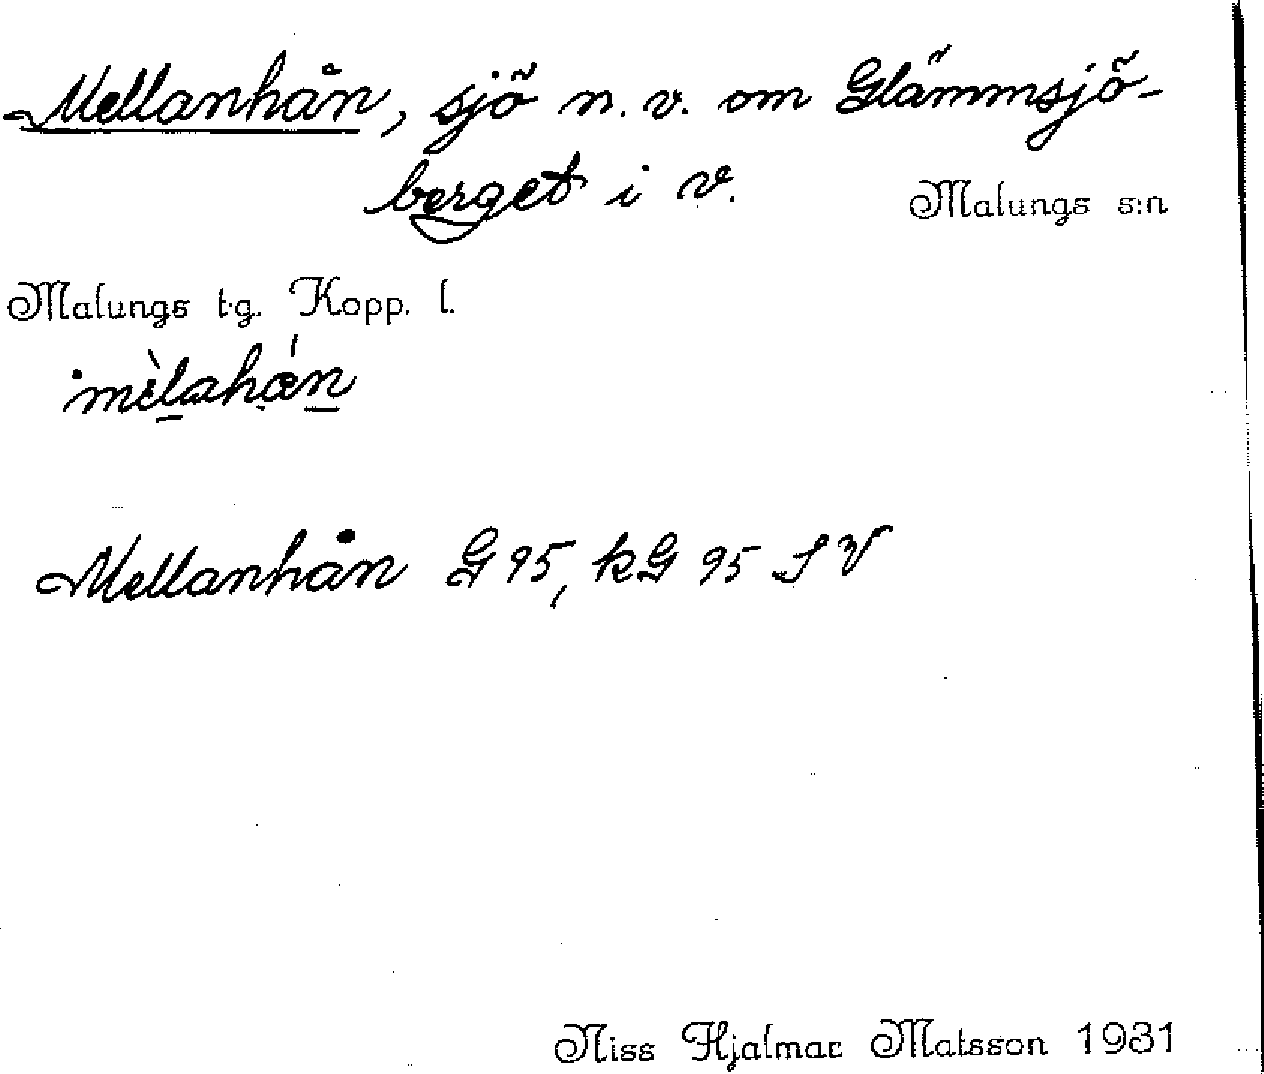 Mellanhån, sjö n.v. om Glämmsjö-
berget i v.
Malungs s:n
Malungs t.g. Kopp. l.
Mellanhån G 95, kG 95 S V
Niss Hjalmar Matsson 1931